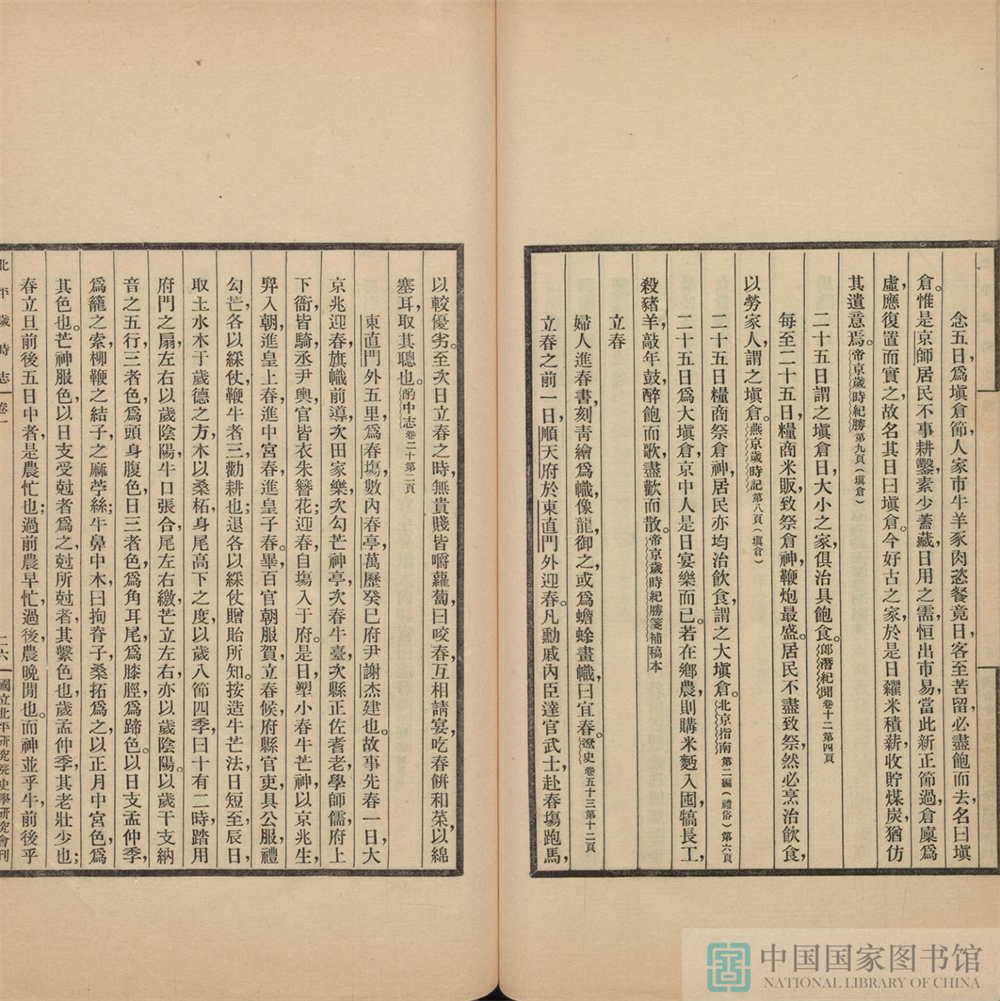 念五日，爲塡倉節，人家市牛羊豕肉恣餐竟日，客至苦留，必盡飽而去，名曰塡
倉。惟是京師居民不事耕鑿，素少蓋藏，日用之需，恒出市易，當此新正節過，倉廩爲
虛，應復置而實之，故名其日曰塡倉。今好古之家，於是日糴米積薪，收貯煤炭，猶仿
其遺意焉。帝京歲時紀勝第九頁（塡倉）
二十五日謂之塡倉日，大小之家俱治具飽食。郎潛紀聞卷十二第四頁
每至二十五日，糧商米販致祭倉神，鞭炮最盛。居民不盡致祭，然必烹治飲食，
以勞家人，謂之塡倉。燕京歲時記第八頁（塡倉）
二十五日糧商祭倉神，居民亦均治飲食，謂之大塡倉。北京指南第二編（禮俗）第六頁
二十五日爲大塡倉，京中人是日宴樂而已。若在鄉農，則購米麪入囤，犒長工，
殺豬羊，敲年鼓，醉飽而歌，盡歡而散。帝京歲時紀勝箋補稿本
立春
婦人進春書，刻靑繒爲幟，像龍御之，或爲蟾蜍，畫幟曰宜春。遼史卷五十三第十二頁
立春之前一日，順天府於東直門外迎春。凡勳戚內臣達官武士，赴春塲跑馬，
以較優劣。至次日立春之時，無貴賤皆嚼蘿蔔曰咬春，互相請宴，吃春餅和菜，以綿
塞耳，取其聰也。酌中志卷二十第二頁
東直門外五里，爲春塲，塲內春亭，萬歷癸巳府尹謝杰建也。故事先春一日，大
京兆迎春，旗幟前導，次田家樂，次勾芒神亭，次春牛臺，次縣正佐耆老學師儒，府上
下衙皆騎，丞尹輿，官皆衣朱簪花；迎春自塲入于府。是日塑小春牛芒神，以京兆生
舁入朝，進皇上春，進中宮春，進皇子春。畢，百官朝服賀，立春候府縣官吏具公服，禮
勾芒，各以綵仗鞭牛者三，勸耕也；退各以綵仗贈貽所知。按造牛芒法，日短至辰日，
取土水木于歲德之方，木以桑柘，身尾高下之度，以歲八節四季，曰十有二時，踏用
府門之扇，左右以歲陰陽，牛口張合，尾左右繳，芒立左右，亦以歲陰陽。以歲干支納
音之五行，三者色，爲頭身腹色，日三者色，爲角耳尾，爲膝脛，爲蹄色。以日支孟仲季，
爲籠之索，柳鞭之結子之麻苧絲；牛鼻中木曰拘脊子，桑拓爲之；以正月中宮色，爲
其色也。芒神服色，以日支受尅者爲之，尅所尅者，其繫色也，歲孟仲季，其老壯少也；
春立旦前後五日中者，是農忙也，過前農早忙，過後農晚閒也。而神並乎牛，前後乎
北平歲時志 卷一 二六 國立北平研究院史學研究會刊